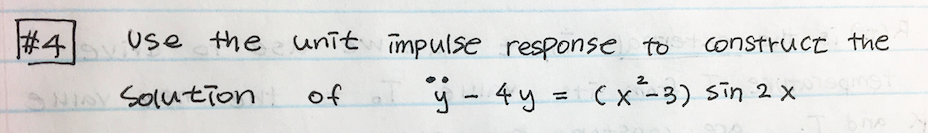 #4 Use the unit impulse response to construct the
solution of ÿ - 4y = (x²-3) sin 2x